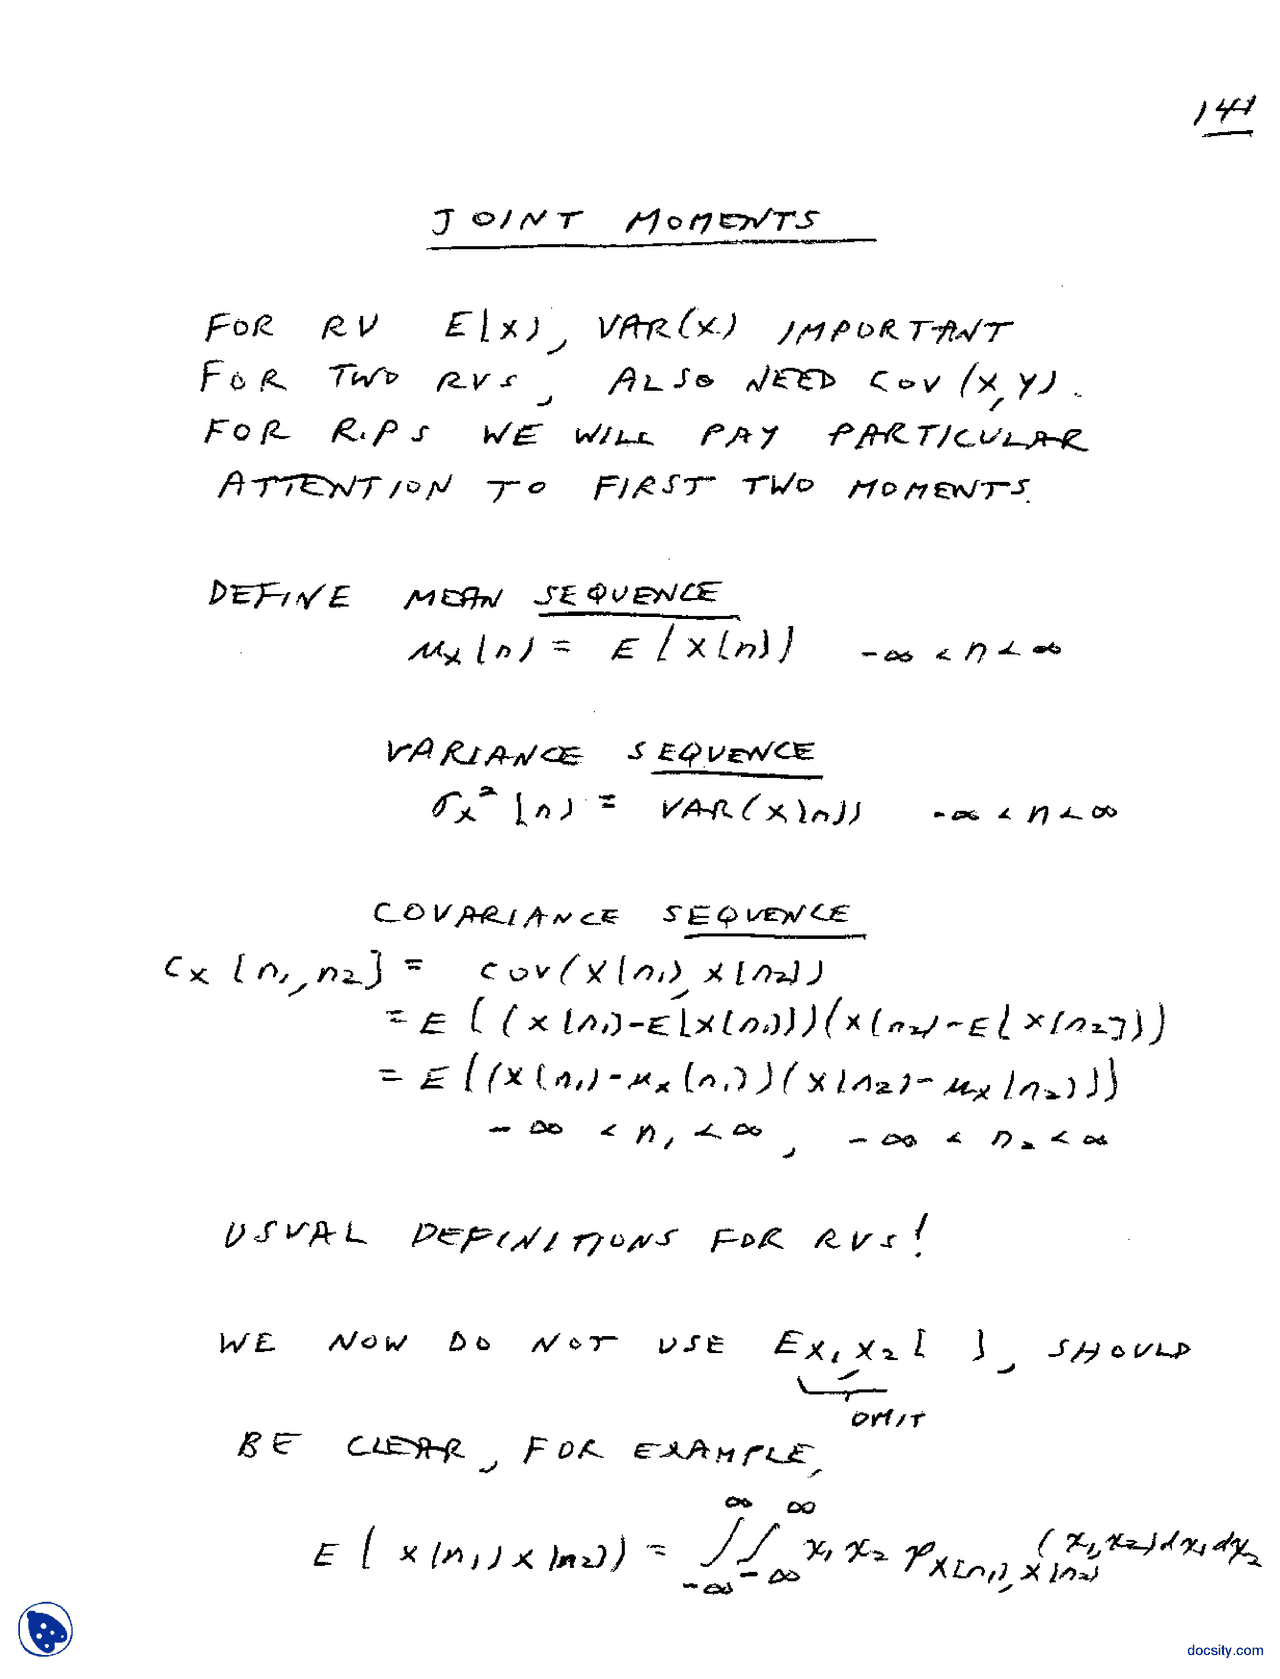 141
JOINT MOMENTS
FOR RV E[X], VAR(X) IMPORTANT
FOR TWO RVS, ALSO NEED COV(X,Y).
FOR R.PS WE WILL PAY PARTICULAR
ATTENTION TO FIRST TWO MOMENTS.
DEFINE MEAN SEQUENCE
μx[n] = E[X[n]] -∞ < n < ∞
VARIANCE SEQUENCE
σx²[n] = VAR(X[n]) -∞ < n < ∞
COVARIANCE SEQUENCE
Cx[n₁,n₂] = COV(X[n₁], X[n₂])
= E[(X[n₁]-E[X[n₁]])(X[n₂]-E[X[n₂]])]
= E[(X[n₁]-μx[n₁])(X[n₂]-μx[n₂])]
-∞ < n₁ < ∞, -∞ < n₂ < ∞
USUAL DEFINITIONS FOR RVS!
WE NOW DO NOT USE Ex₁,x₂[ ], SHOULD
OMIT
BE CLEAR, FOR EXAMPLE,
E[X[n₁]X[n₂]] = ∫_{-∞}^{∞} ∫_{-∞}^{∞} x₁ x₂ p_{X[n₁],X[n₂]}(x₁,x₂)dx₁dx₂
docsity.com